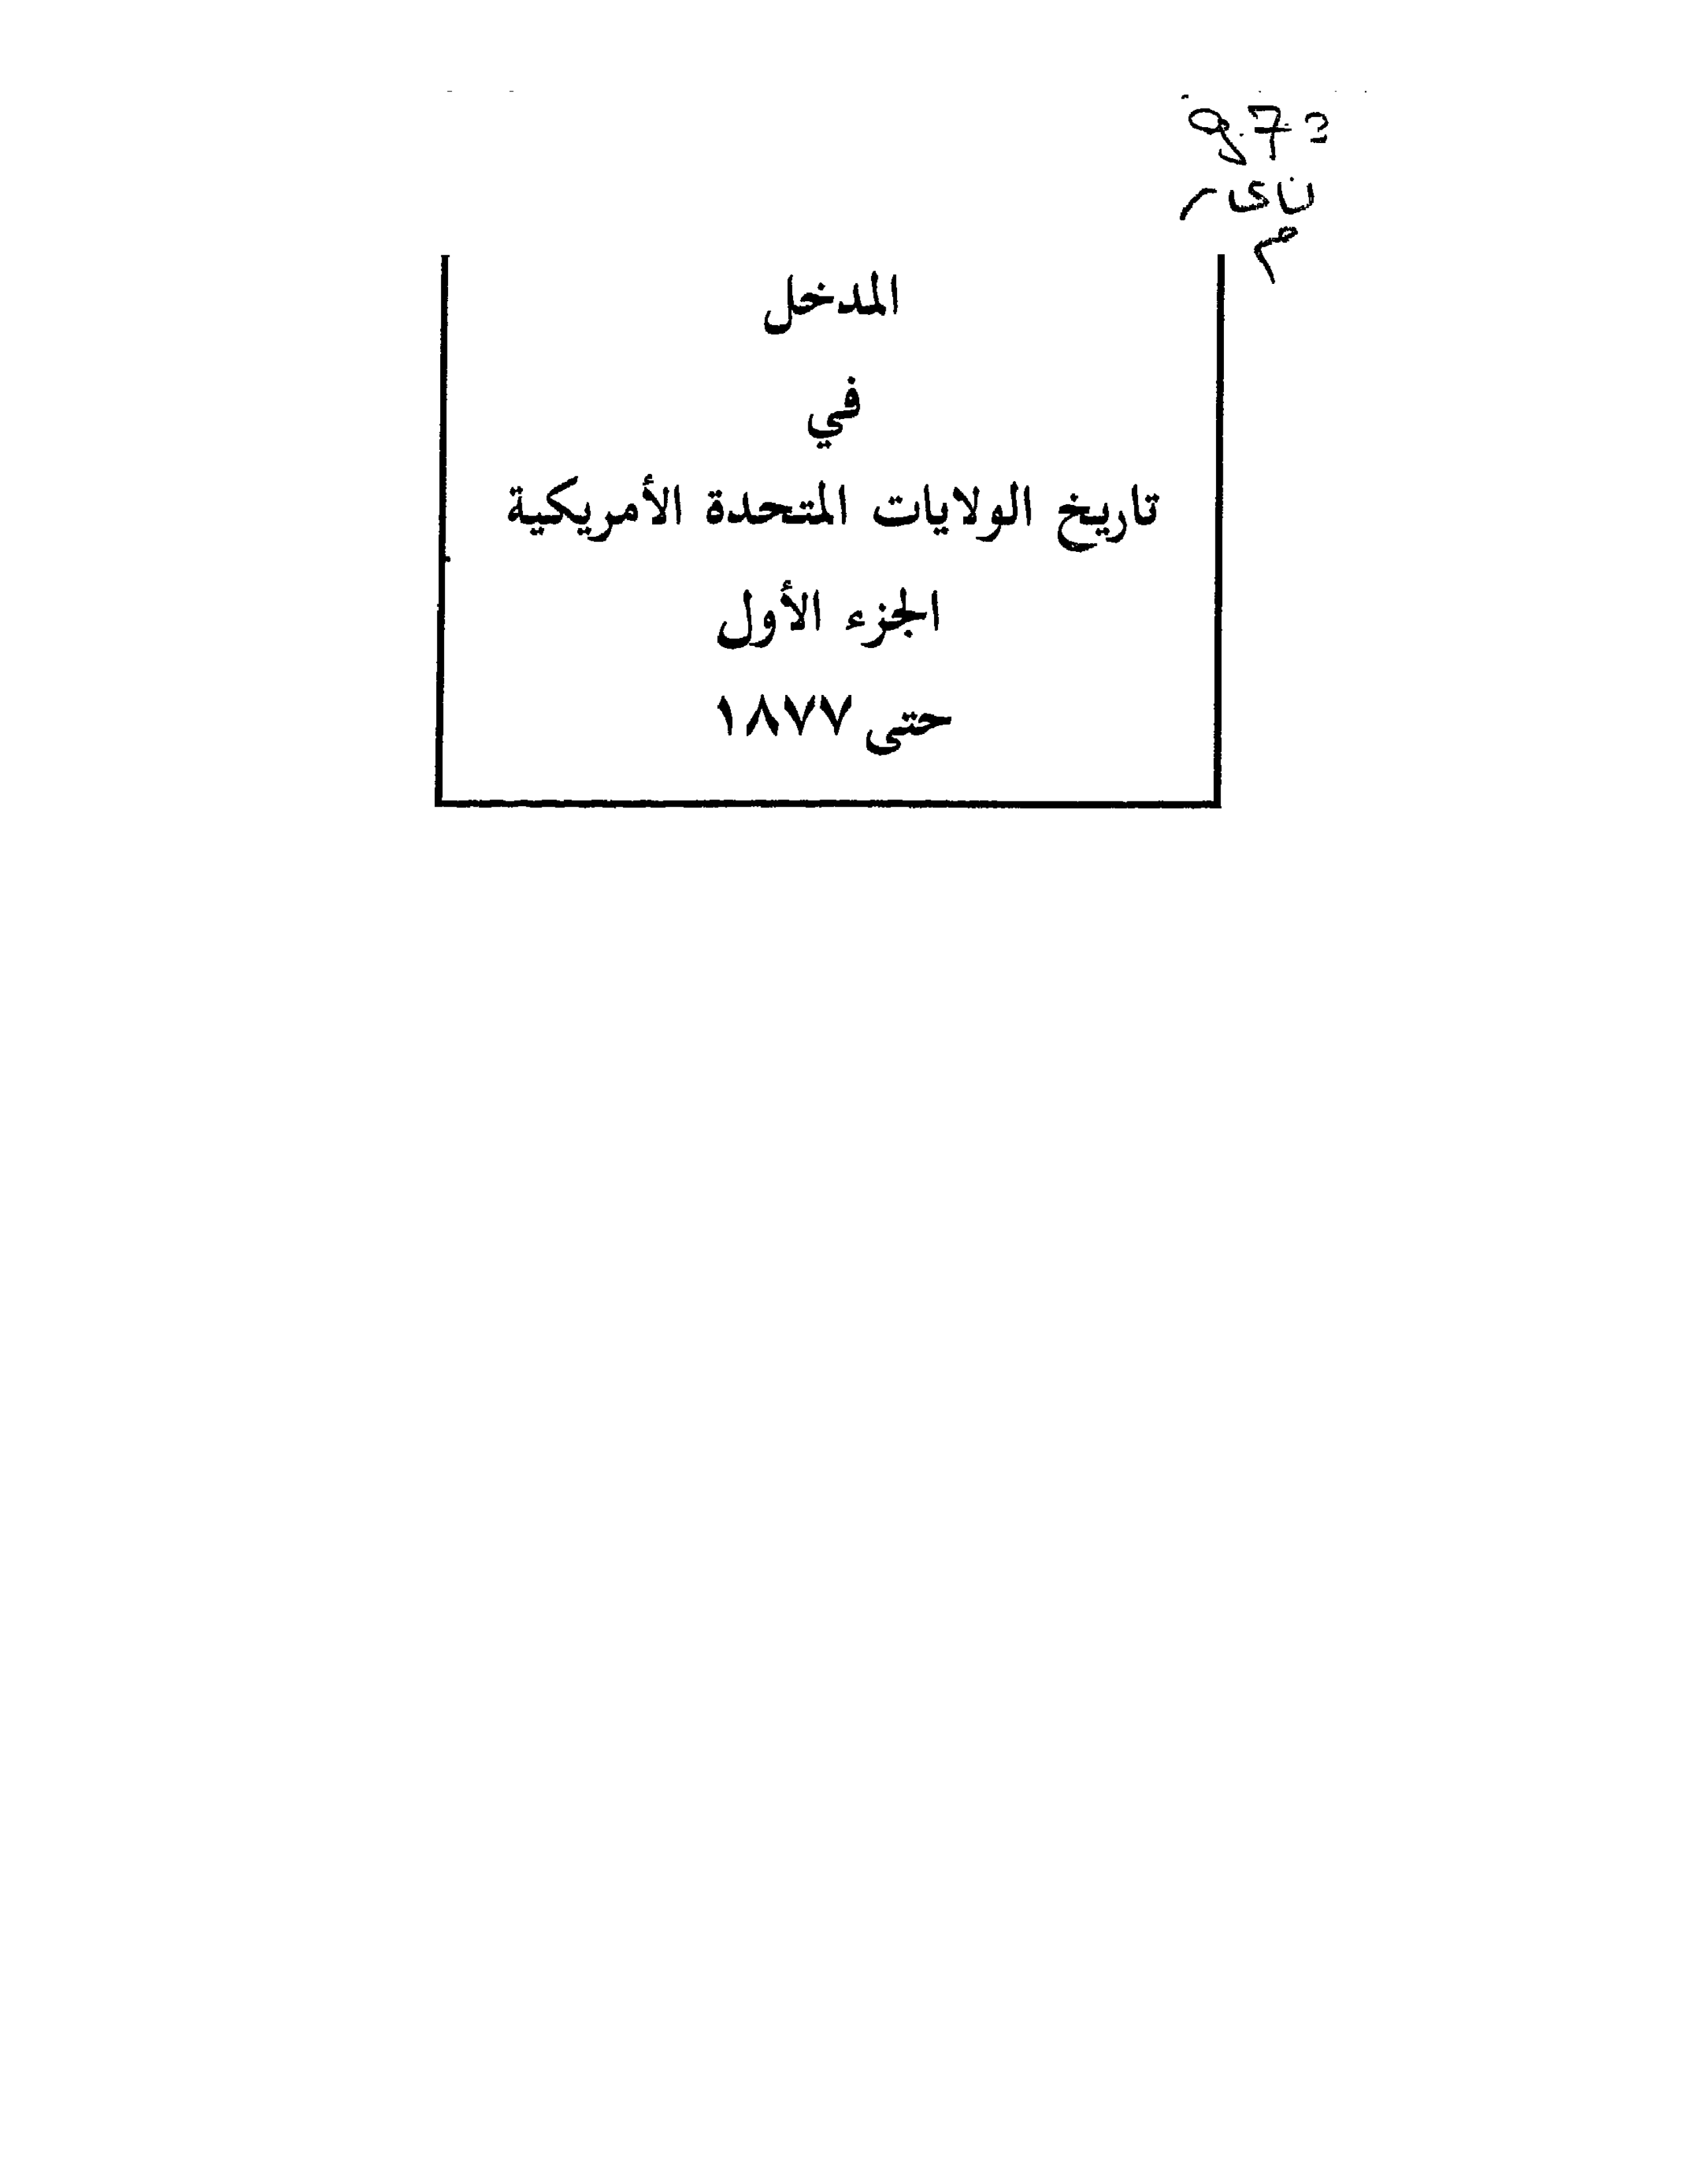 973
ن ى ر
م
المدخل
في
تاريخ الولايات المتحدة الأمريكية
الجزء الأول
حتى ١٨٧٧